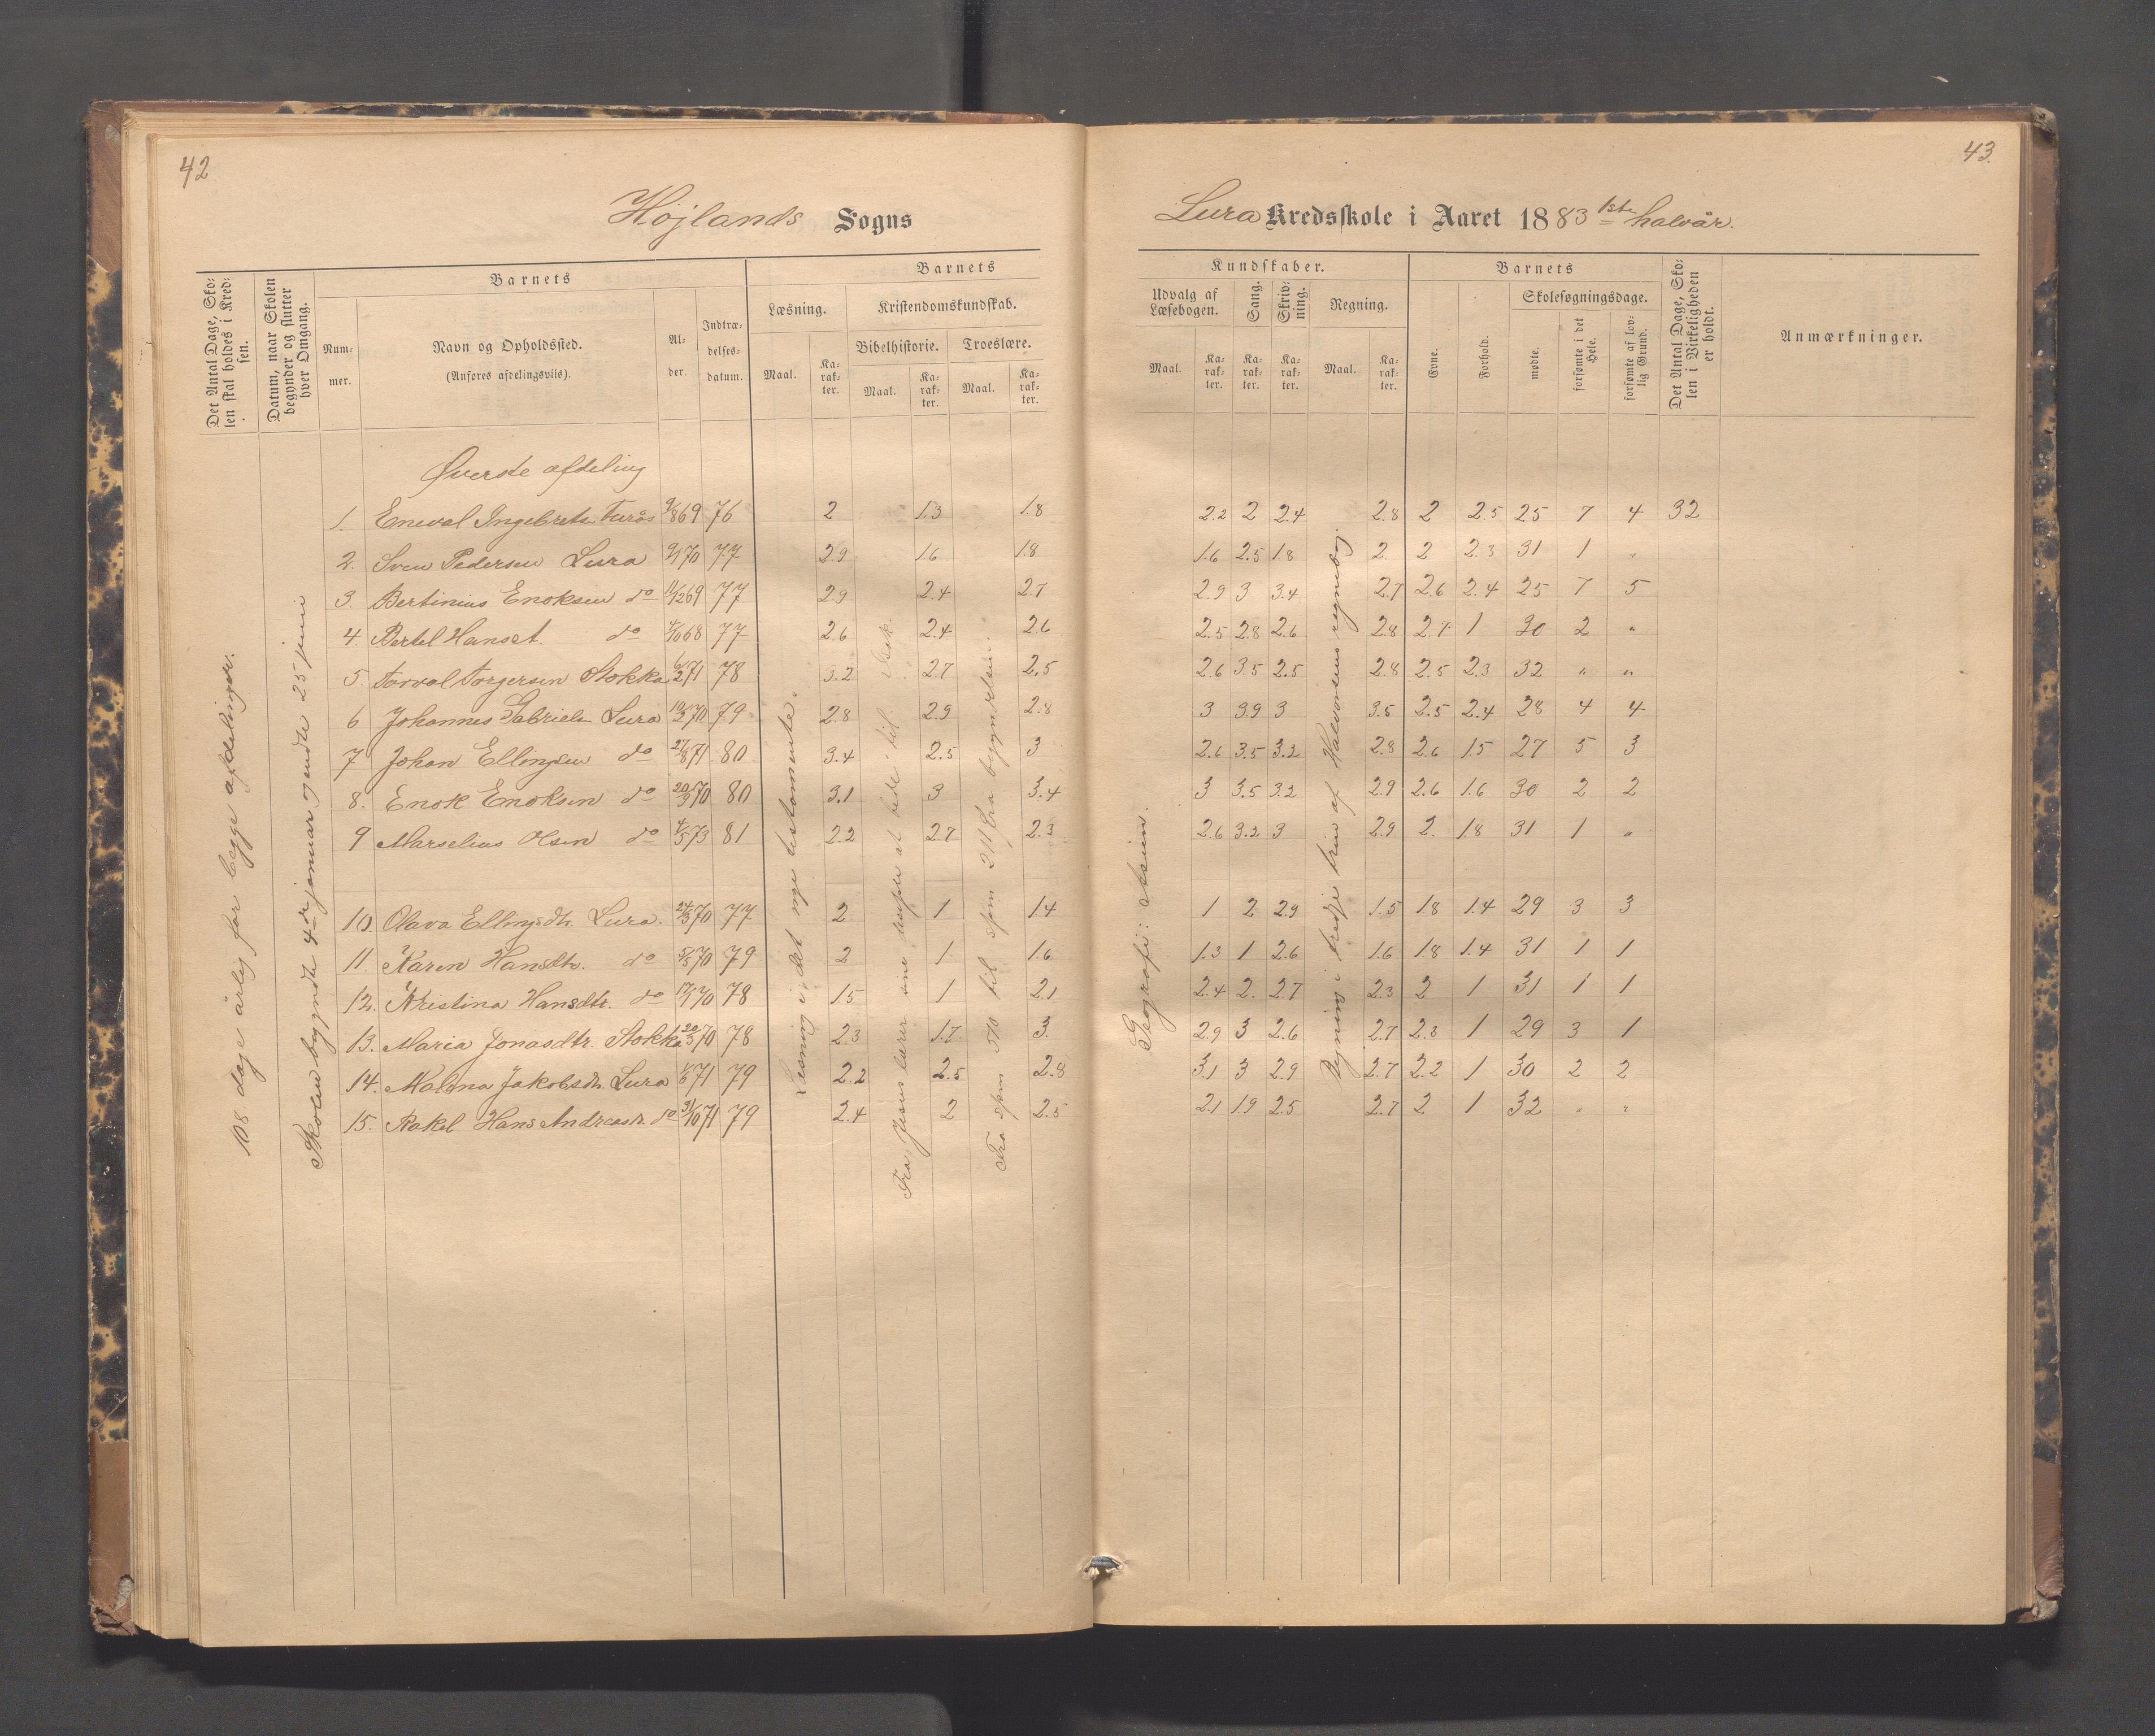 42
Höjlands Sogns
Det Antal Dage, Sko-
len skal holdes i Kred-
sen.
Datum, naar Skolen
begynder og slutter
hver Omgang.
Barnets
Num-
mer.
Navn og Opholdssted.
(Anføres afdelingsviis).
Al-
der.
Indtræ-
delses-
datum.
Barnets
Læsning.
Kristendomskundskab.
Bibelhistorie.
Troeslære.
Maal.
Ka-
rak-
ter.
Maal.
Ka-
rak-
ter.
Maal.
Ka-
rak-
ter.
108 dage årlig for begge afdelinger.
Skolen begyndte 4de januar og endte 25 juni
Øverste afdeling
1. Eneval Ingebrets 9/8 69 76 2 1.3 1.8
2. Sven Pedersen Lura 9/1 70 77 2.9 1.6 1.8
3. Bertinius Enoksen do 11/12 69 77 2.9 2.4 2.7
4. Bertel Hans do 4/10 68 77 2.6 2.4 2.6
5. Torval Torgersen Stokka 6/2 71 78 3.2 2.7 2.5
6 Johannes Gabriels Lura 10/2 70 79 2.8 2.9 2.8
7 Johan Ellingsen do 27/8 71 80 3.4 2.5 3
8. Enok Enoksen do 20/9 70 80 3.1 3 3.4
9 Marselius Olsen do 4/5 73 81 2.2 2.7 2.3
10. Olava Ellingsdtr. Lura. 24/3 70 77 2 1 1.4
11. Karen Hansdtr. do 5/5 70 79 2 1 1.6
12. Kristina Hansdtr. do 17/1 70 78 1.5 1 2.1
13. Maria Jonasdtr. Stokka 20/3 70 78 2.3 1.7 3.
14. Malena Jakobsdtr. Lura 1/6 71 79 2.2 2.5 2.8
15. Rakel Hans Andreasdtr. do 31/10 71 79 2.4 2 2.5
Læsning i det nye testamente.
Fra Jesus lærer sine disciple at bede til
Fra spm 510 til spm 211 fra begyndelsen.
43.
Lura Kredsskole i Aaret 1883 1ste halvår.
Kundskaber.
Udvalg af
Læsebogen.
Sang.
Skriv-
ning.
Regning.
Maal.
Ka-
rak-
ter.
Ka-
rak-
ter.
Ka-
rak-
ter.
Maal.
Ka-
rak-
ter.
Barnets
Evne.
Forhold.
Skolesøgningsdage.
mødte.
forsømte i det
Hele.
forsømte af lov-
lig Grund.
Det Antal Dage, Sko-
len i Virkeligheden
er holdt.
Anmærkninger.
2.2 2 2.4 2.8 2 2.5 25 7 4 32
1.6 2.5 1.8 2. 2 2.3 31 1 "
2.9 3 3.4 2.7 2.6 2.4 25 7 5
2.5 2.8 2.6 2.8 2.7 1 30 2 "
2.6 3.5 2.5 2.8 2.5 2.3 32 " "
3 3.9 3 3.5 2.5 2.4 28 4 4
2.6 3.5 3.2 2.8 2.6 1.5 27 5 3
3 3.5 3.2 2.9 2.6 1.6 30 2 2
2.6 3.2 3 2.9 2. 1.8 31 1 "
1 2 2.9 1.5 1.8 1.4 29 3 3
1.3 1 2.6 1.6 1.8 1.4 31 1 1
2.4 2. 2.7 2.3 2 1 31 1 1
2.9 3 2.6 2.7 2.3 1 29 3 1
3.1 3 2.9 2.7 2.2 1 30 2 2
2.1 1.9 2.5 2.7 2 1 32 " "
Geografi: Asien.
Regning i tredje trin af Halvorsens regnebog.